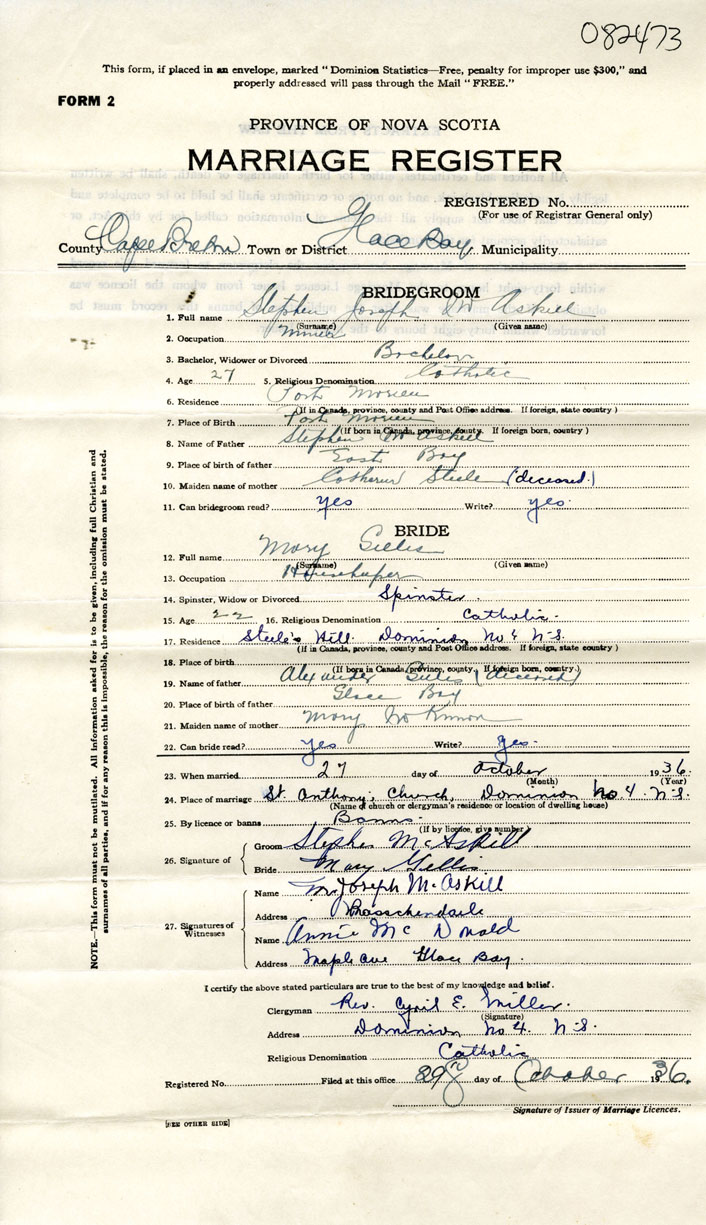 082473
This form, if placed in an envelope, marked "Dominion Statistics—Free, penalty for improper use $300," and
properly addressed will pass through the Mail "FREE."
FORM 2
PROVINCE OF NOVA SCOTIA
MARRIAGE REGISTER
REGISTERED No.
(For use of Registrar General only)
County Cape Breton Town or District Glace Bay Municipality
BRIDEGROOM
1. Full name Stephen Joseph McAskill
(Surname) (Given name)
2. Occupation Miner
3. Bachelor, Widower or Divorced Bachelor
4. Age 27 5. Religious Denomination Catholic
6. Residence Port Morien
(If in Canada, province, county and Post Office address. If foreign, state country)
7. Place of Birth Port Morien
(If born in Canada, province, county. If foreign born, country)
8. Name of Father Stephen McAskill
9. Place of birth of father East Bay
10. Maiden name of mother Catherine Steele (deceased.)
11. Can bridegroom read? yes Write? yes.
BRIDE
12. Full name Mary Gillis
(Surname) (Given name)
13. Occupation Housekeeper
14. Spinster, Widow or Divorced Spinster.
15. Age 22 16. Religious Denomination Catholic.
17. Residence Steele's Hill. Dominion No 4 N-S.
(If in Canada, province, county and Post Office address. If foreign, state country)
18. Place of birth
(If born in Canada, province, county. If foreign born, country.)
19. Name of father Alexander Gillis (deceased)
20. Place of birth of father Glace Bay
21. Maiden name of mother Mary McKinnon
22. Can bride read? yes Write? yes.
23. When married 27 day of October 1936.
(Month) (Year)
24. Place of marriage St. Anthony's Church, Dominion No. 4. N-S.
(Name of church or clergyman's residence or location of dwelling house)
25. By licence or banns Banns.
(If by licence, give number)
26. Signature of
Groom Stephen McAskill
Bride Mary Gillis
27. Signatures of Witnesses
Name Joseph McAskill
Address Passchendaele
Name Annie McDonald
Address Maple ave Glace Bay.
I certify the above stated particulars are true to the best of my knowledge and belief.
Clergyman Rev. Cyril E. Miller.
(Signature)
Address Dominion No 4. N-S.
Religious Denomination Catholic
Registered No. Filed at this office 29 day of October 1936.
Signature of Issuer of Marriage Licences.
[SEE OTHER SIDE]
NOTE.—This form must not be mutilated. All information asked for is to be given, including full Christian and
surnames of all parties, and if for any reason this is impossible, the reason for the omission must be stated.